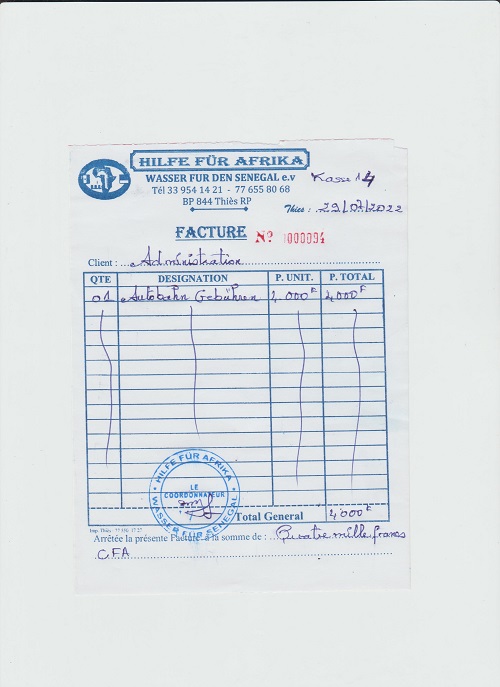 HILFE FÜR AFRIKA
WASSER FUR DEN SENEGAL e.v
Tél 33 954 14 21 - 77 655 80 68
BP 844 Thiès RP
Kasse 14
Thies : 29/07/2022
FACTURE Nº 000094
Client : Administration
QTE DESIGNATION P. UNIT. P. TOTAL
01 Autobahn Gebühren 4.000F 4000F
HILFE FÜR AFRIKA
LE
COORDONNATEUR
WASSER FUR SENEGAL
Total General 4000F
Imp. Thiès
Arrêtée la présente Facture à la somme de : Quatre mille francs
CFA